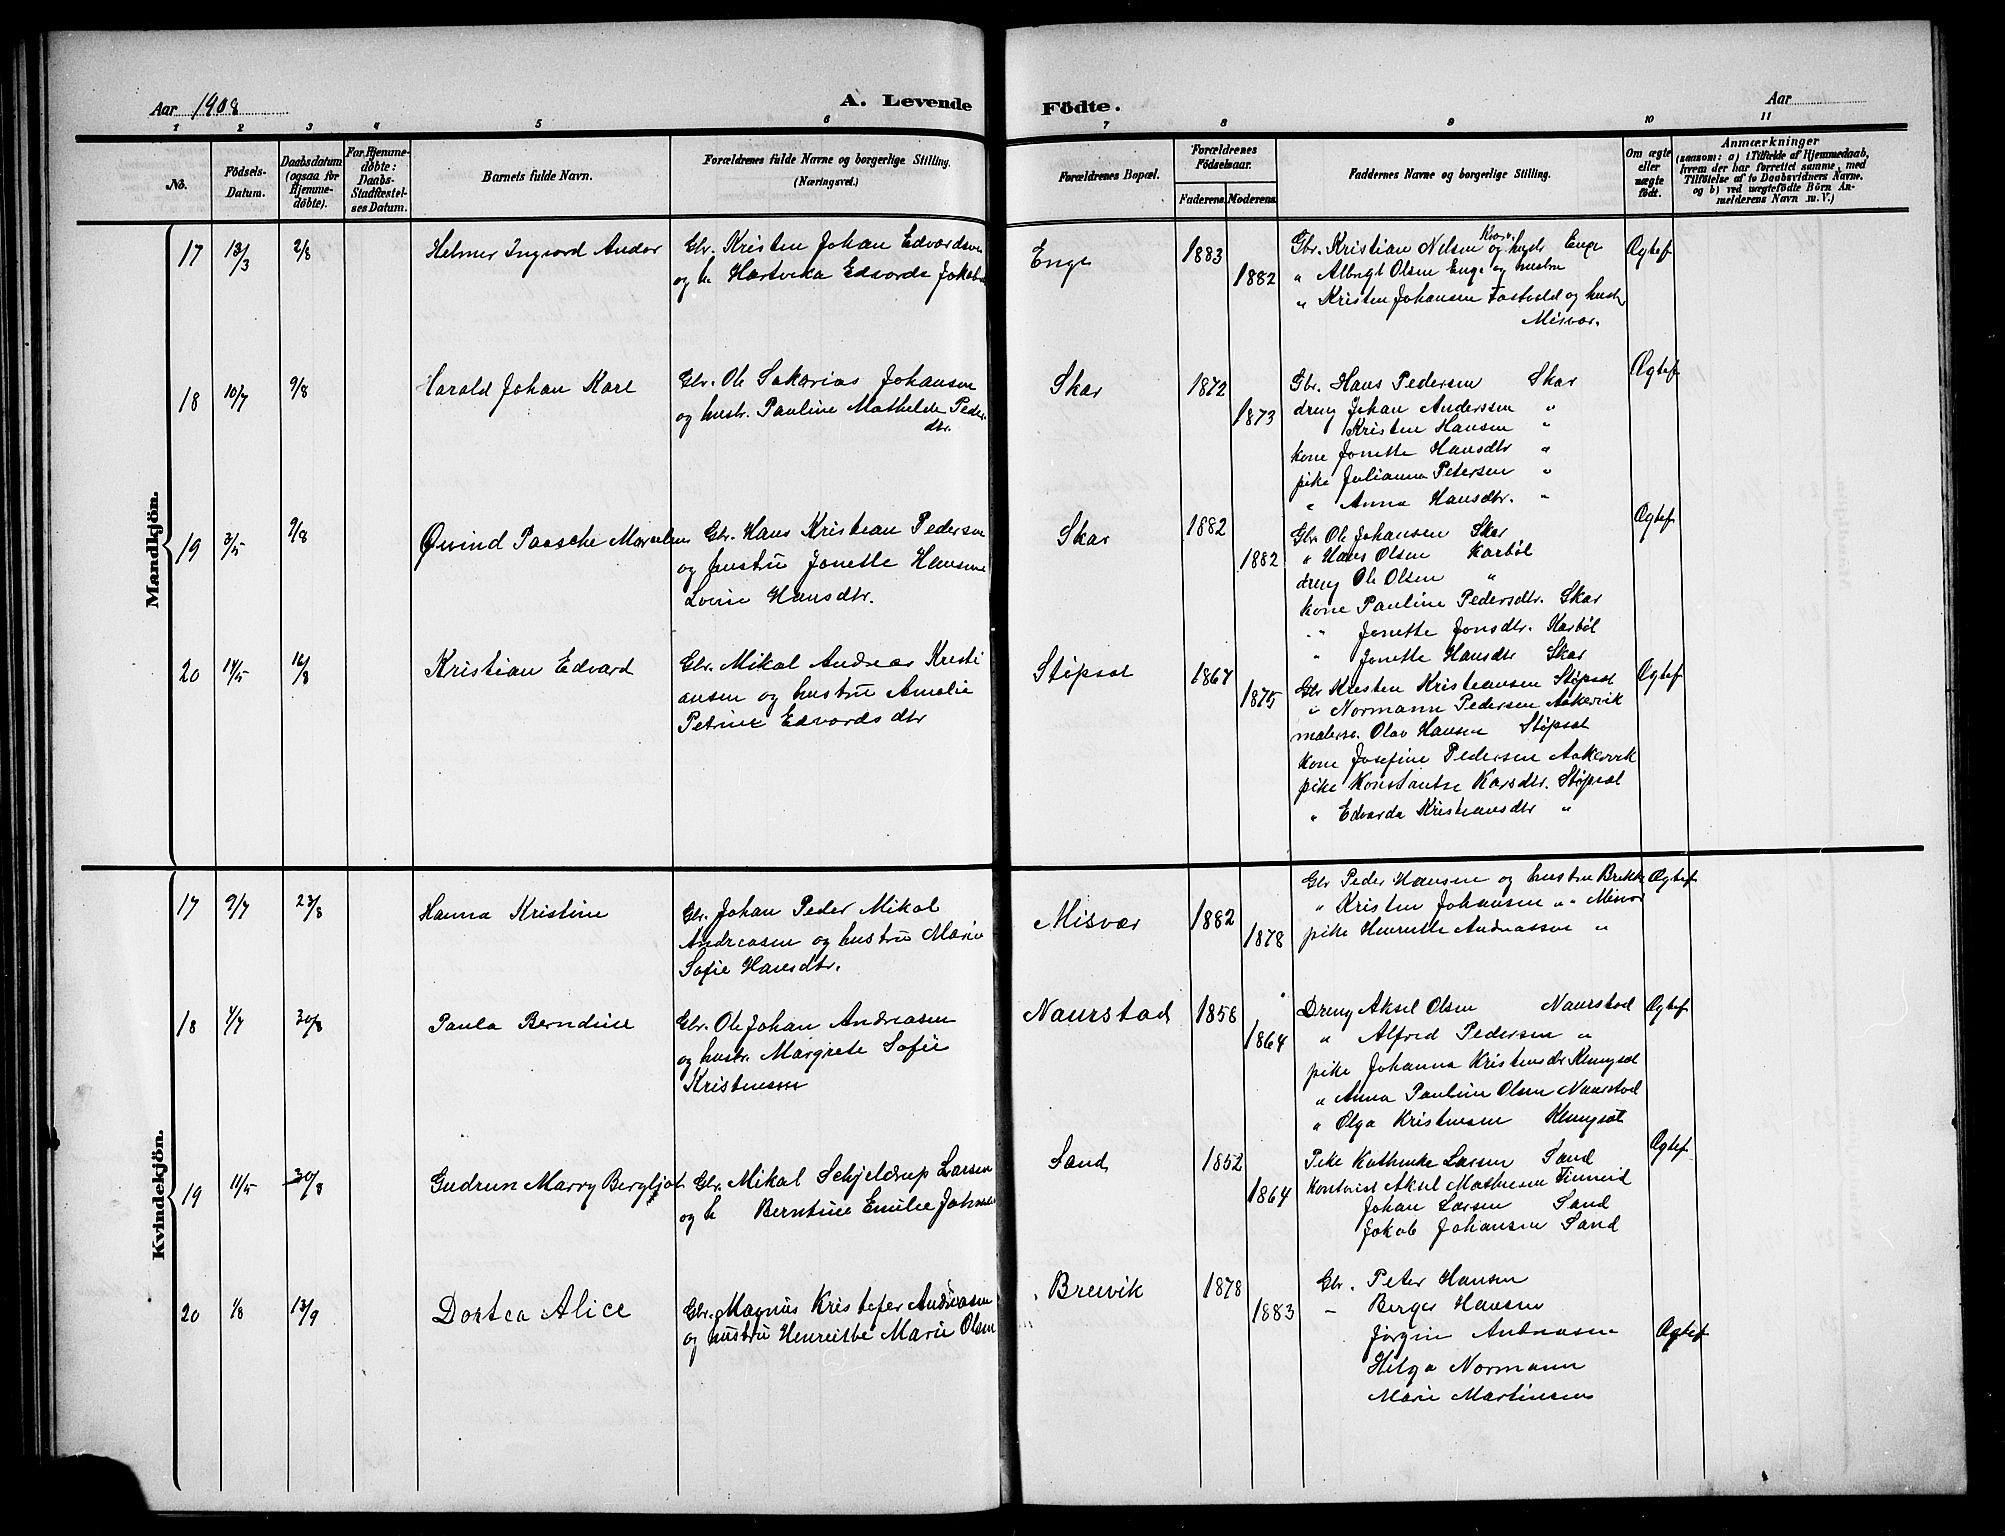 Aar 1908
A. Levende Födte.
Aar
1 2 3 4 5 6 7 8 9 10 11
No.
Födsels-Datum.
Daabsdatum (ogsaa for Hjemme-døbte).
For Hjemme-døbte: Daabs-Stadfæstel-ses Datum.
Barnets fulde Navn.
Forældrenes fulde Navne og borgerlige Stilling. (Næringsvei.)
Forældrenes Bopæl.
Forældrenes Födselsaar.
Faderens. Moderens.
Faddernes Navne og borgerlige Stilling.
Om ægte eller uægte födt.
Anmærkninger
(saasom: a) i Tilfælde af Hjemmedaab,
hvem der har forrettet samme, med
Tilföielse af to Daabsvidners Navne.
og b) ved uægtefödte Börn An-
melderens Navn m. V.)
Mandkjön.
17 13/3 2/8 Helmer Ingvard Andor
Gbr. Kristen Johan Edvardsen
og h. Hartvika Edvarda Jakobs
Enge 1883 1882
Gbr. Kristian Nilsen og hustr Enge
" Albrigt Olsen Enge og hustru
" Kristen Johansen Tostvold og hustr
Misvær.
Ægtef
18 10/7 9/8 Harald Johan Karl
Gbr. Ole Sakarias Johansen
og hustr. Pauline Mathilde Peder
dtr.
Skar 1872 1873
Gbr. Hans Pedersen Skar
dreng Johan Anderssen "
Kristen Hansen "
kone Jonette Hansdtr "
pike Julianna Petersen "
" Anna Hansdtr. "
Ægtef
19 3/5 9/8 Øivind Paasche Marcelius
Gbr. Hans Kristian Pedersen
og hustru Jonette Hansine
Lovise Hansdtr.
Skar 1882 1882
Gbr. Ole Johansen Skar
" Hans Olsen Karbøl
dreng Ole Olsen "
kone Pauline Pedersdtr. Skar
" Jonette Jonsdtr. Karbøl
" Jonette Hansdtr Skar
Ægtef
20 14/5 16/8 Kristian Edvard
Gbr. Mikal Andreas Kristi
ansen og hustru Amalie
Petrine Edvardsdtr
Støpsat 1867 1875
Gbr Kristen Kristiansen Støpsat
" Normann Pedersen Aakervik
Olav Hansen Støpsat
kone Josefine Pedersen Aakervik
pike Konstantse Karsdtr. Støpsat
" Edvarda Kristiansdtr "
Ægtef
Kvindekjön.
17 9/7 23/8 Hanna Kristine
Gbr. Johan Peder Mikal
Andreasen og hustru Marie
Sofie Hansdtr.
Misvær 1882 1878
Gbr Peder Hansen og hustru Brekke
" Kristen Johansen " " Misvær
pike Henriette Andreassen "
Ægtef
18 4/7 30/8 Paula Berndine
Gbr. Ole Johan Andreasen
og hustr. Margrete Sofie
Kristensen
Naurstad 1858 1864
Dreng Aksel Olsen Naurstad
" Alfred Pedersen "
pike Johanna Kristensdtr Klungsat
" Anna Pauline Olsen Naurstad
" Olga Kristensen Klungsat
Ægtef
19 11/5 30/8 Gudrun Marry Bergljot
Gbr. Mikal Schjeldrup Larsen
og h Berntine Emilie Johnsen
Sand 1852 1864
Pike Kathinka Larsen Sand
Kontorist Aksel Mathisen Finneid
Johan Larsen Sand
Jakob Johansen Sand
Ægtef
20 1/8 13/9 Dortea Alice
Gbr. Magnus Kristofer Andreasen
og hustru Henriette Marie Olsen
Breivik 1878 1883
Gbr. Peter Hansen
– Berger Hansen
Jørgine Andreasen
Helga Normann
Marie Martinsen
Ægtef